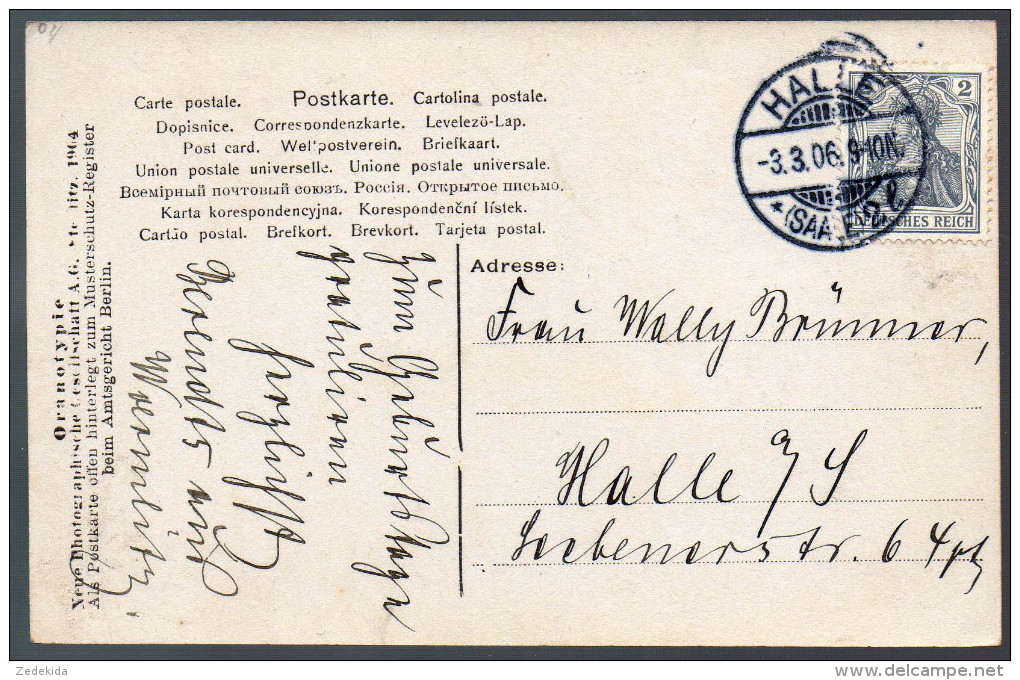 04
Carte postale. Postkarte. Cartolina postale.
Dopisnice. Correspondenzkarte. Levelező-Lap.
Post card. Weltpostverein. Briefkaart.
Union postale universelle. Unione postale universale.
Всемірный почтовый союзъ. Россія. Открытое письмо.
Karta korespondencyjna. Korespondenční lístek.
Cartão postal. Brefkort. Brevkort. Tarjeta postal.
HALLE
-3.3.06. 9-10N.
* (SAALE) 2 l
2
DEUTSCHES REICH
Adresse:
Frau Wally Brünner,
Halle a/S
Seebenerstr. 64 pt
zum Geburtstage
gratulieren
herzlichst
Berendts und
Woernlitz.
Oranotypie
Neue Photographische Gesellschaft A.G. Steglitz. 1904
Als Postkarte offen hinterlegt zum Musterschutz-Register
beim Amtsgericht Berlin.
Zedekida
delcampe.net